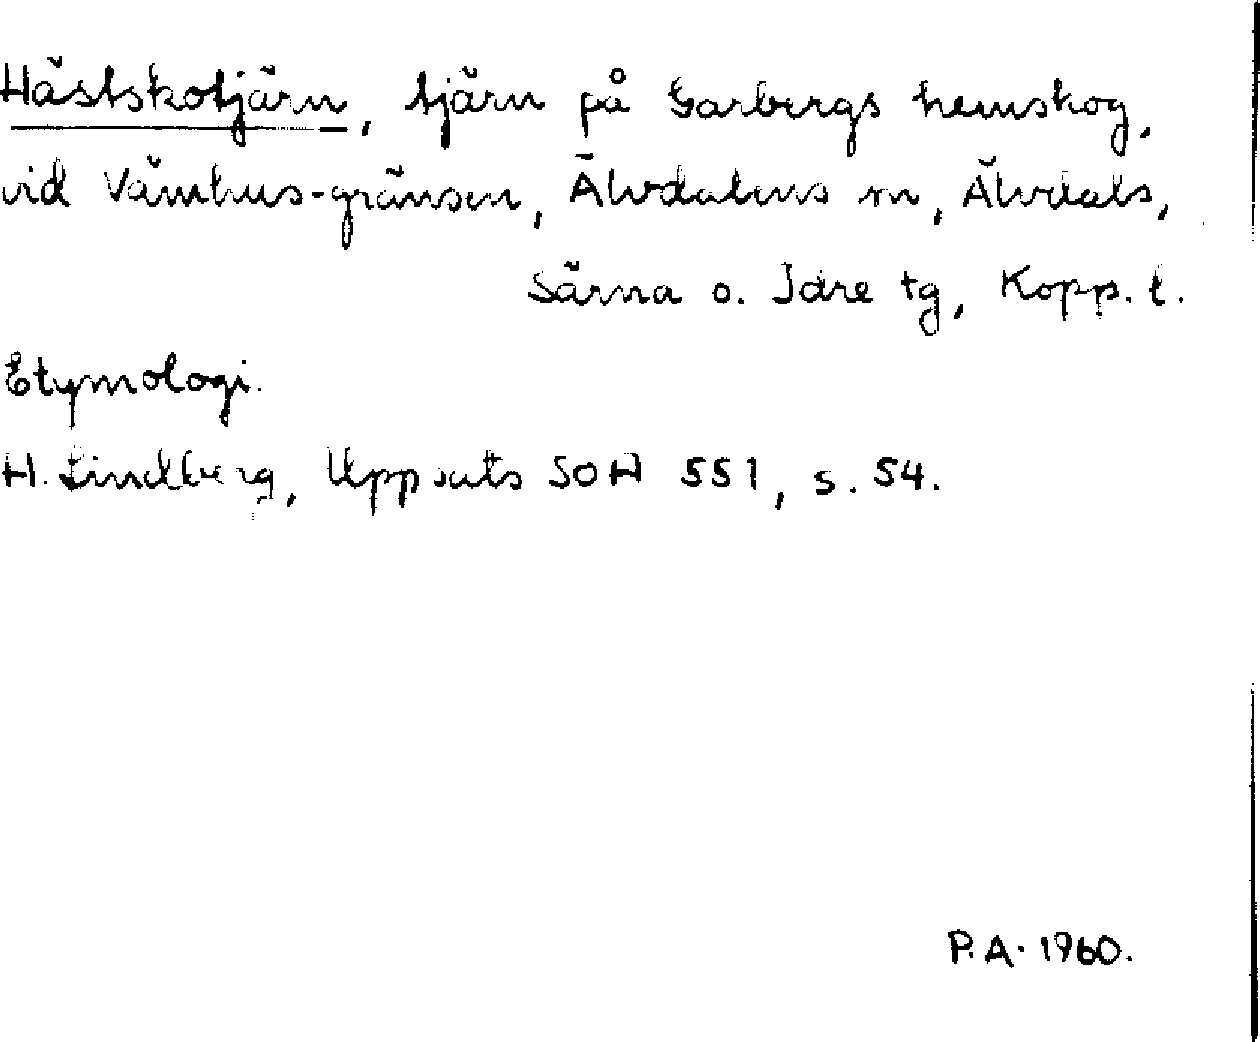 Hästskotjärn, tjärn på Garbergs hemskog,
vid Våmhus-gränsen, Älvdalens sn, Älvdals,
Särna o. Idre tg, Kopp. l.
Etymologi.
H. Lindberg, Uppsats SOH 551, s. 54.
P.A. 1960.